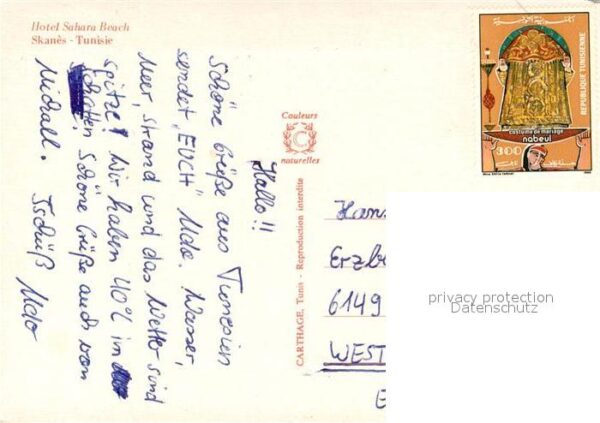 Hotel Sahara Beach
Skanès - Tunisie
Hallo!!
Schöne Grüße aus Tunesien
sendet „EUCH" Udo. Wasser,
Meer, Strand und das Wetter sind
spitze! Wir haben 40% im
Schatten, Schöne Grüße auch von
Michael. Tschüß Udo
Couleurs
C
naturelles
CARTHAGE, Tunis - Reproduction interdite
REPUBLIQUE TUNISIENNE
costume de mariage
nabeul
300
Hans
Erzb
6149
WEST
privacy protection
Datenschutz